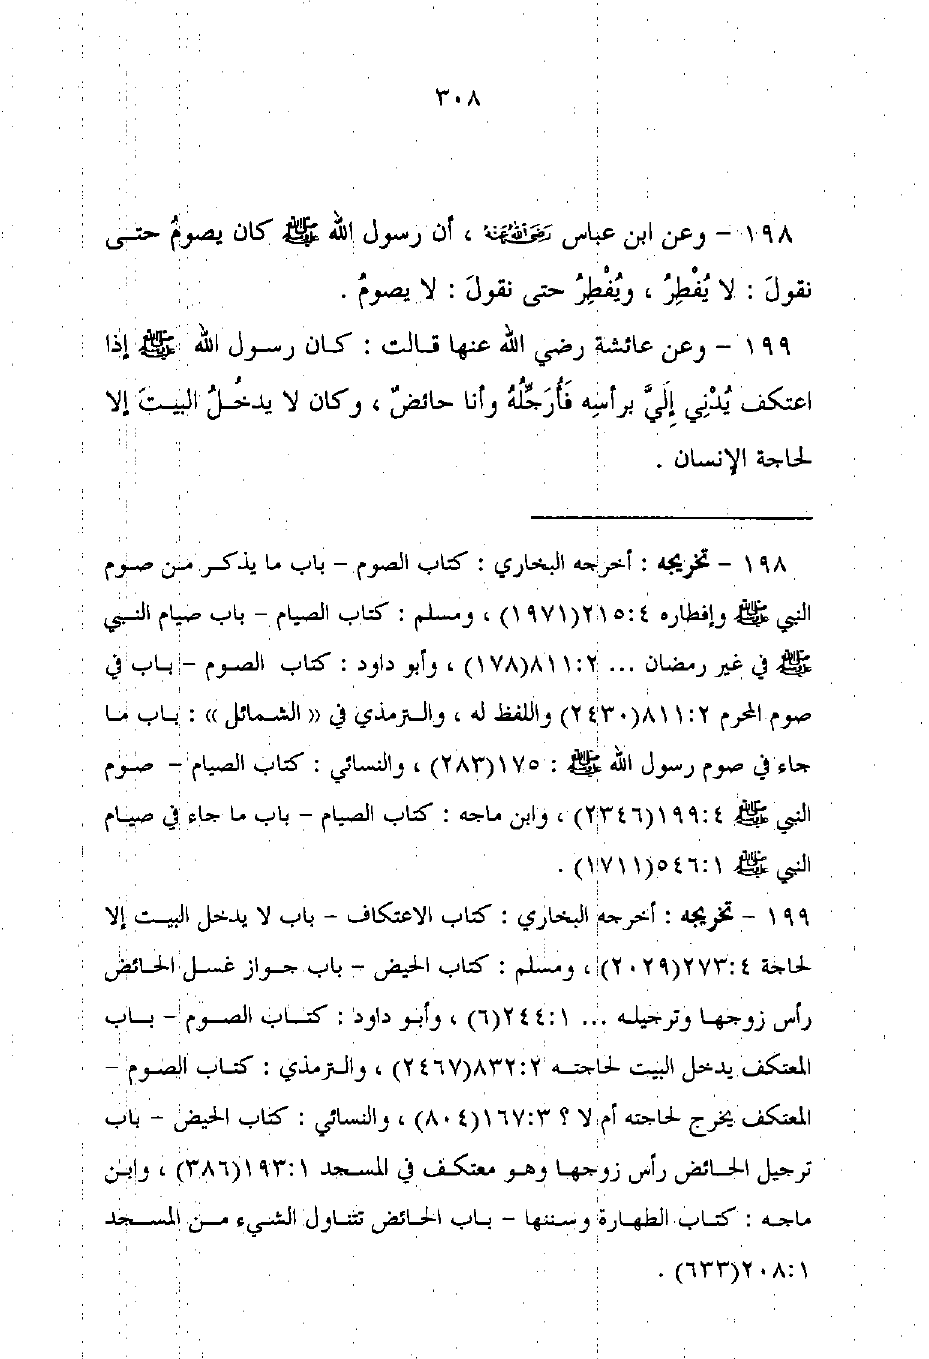 ٣٠٨
١٩٨ - وعن ابن عباس رَضِيَ اللهُ عَنْهُ ، أن رسول الله ﷺ كان يصومُ حتـى
نقولَ : لا يُفْطِرُ ، ويُفْطِرُ حتى نقولَ : لا يصومُ .
١٩٩ - وعن عائشة رضي الله عنها قـالت : كـان رسـول الله ﷺ إذا
اعتكف يُدْنِي إِلَيَّ برأسِه فَأُرَجِّلُهُ وأنا حائضٌ ، وكان لا يدخُـلُ البيـتَ إلا
لحاجة الإنسان .
١٩٨ - تخريجه : أخرجه البخاري : كتاب الصوم - باب ما يذكـر مـن صـوم
النبي ﷺ وإفطاره ٢١٥:٤(١٩٧١) ، ومسلم : كتاب الصيام - باب صيام النـبـي
ﷺ في غير رمضان ... ٨١١:٢(١٧٨) ، وأبو داود : كتاب الصـوم - بـاب في
صوم المحرم ٨١١:٢(٢٤٣٠) واللفظ له ، والـترمذي في « الشـمائل » : بـاب مـا
جاء في صوم رسول الله ﷺ : ١٧٥(٢٨٣) ، والنسائي : كتاب الصيام - صـوم
النبي ﷺ ١٩٩:٤(٢٣٤٦) ، وابن ماجه : كتاب الصيام - باب ما جاء في صيـام
النبي ﷺ ٥٤٦:١(١٧١١) .
١٩٩ - تخريجه : أخرجه البخاري : كتاب الاعتكاف - باب لا يدخل البيـت إلا
لحاجة ٢٧٣:٤(٢٠٢٩) ، ومسلم : كتاب الحيض - باب جـواز غسـل الحـائض
رأس زوجهـا وترجيلـه ... ٢٤٤:١(٦) ، وأبـو داود : كتـاب الصـوم - بـاب
المعتكف يدخل البيت لحاجتـه ٨٣٢:٢(٢٤٦٧) ، والـترمذي : كتـاب الصـوم -
المعتكف يخرج لحاجته أم لا ؟ ١٦٧:٣(٨٠٤) ، والنسائي : كتاب الحيض - باب
ترجيل الحـائض رأس زوجهـا وهـو معتكـف في المسـجد ١٩٣:١(٣٨٦) ، وابـن
ماجـه : كتـاب الطهـارة وسـننها - بـاب الحـائض تتنـاول الشـيء مـن المسـجد
٢٠٨:١(٦٣٣) .